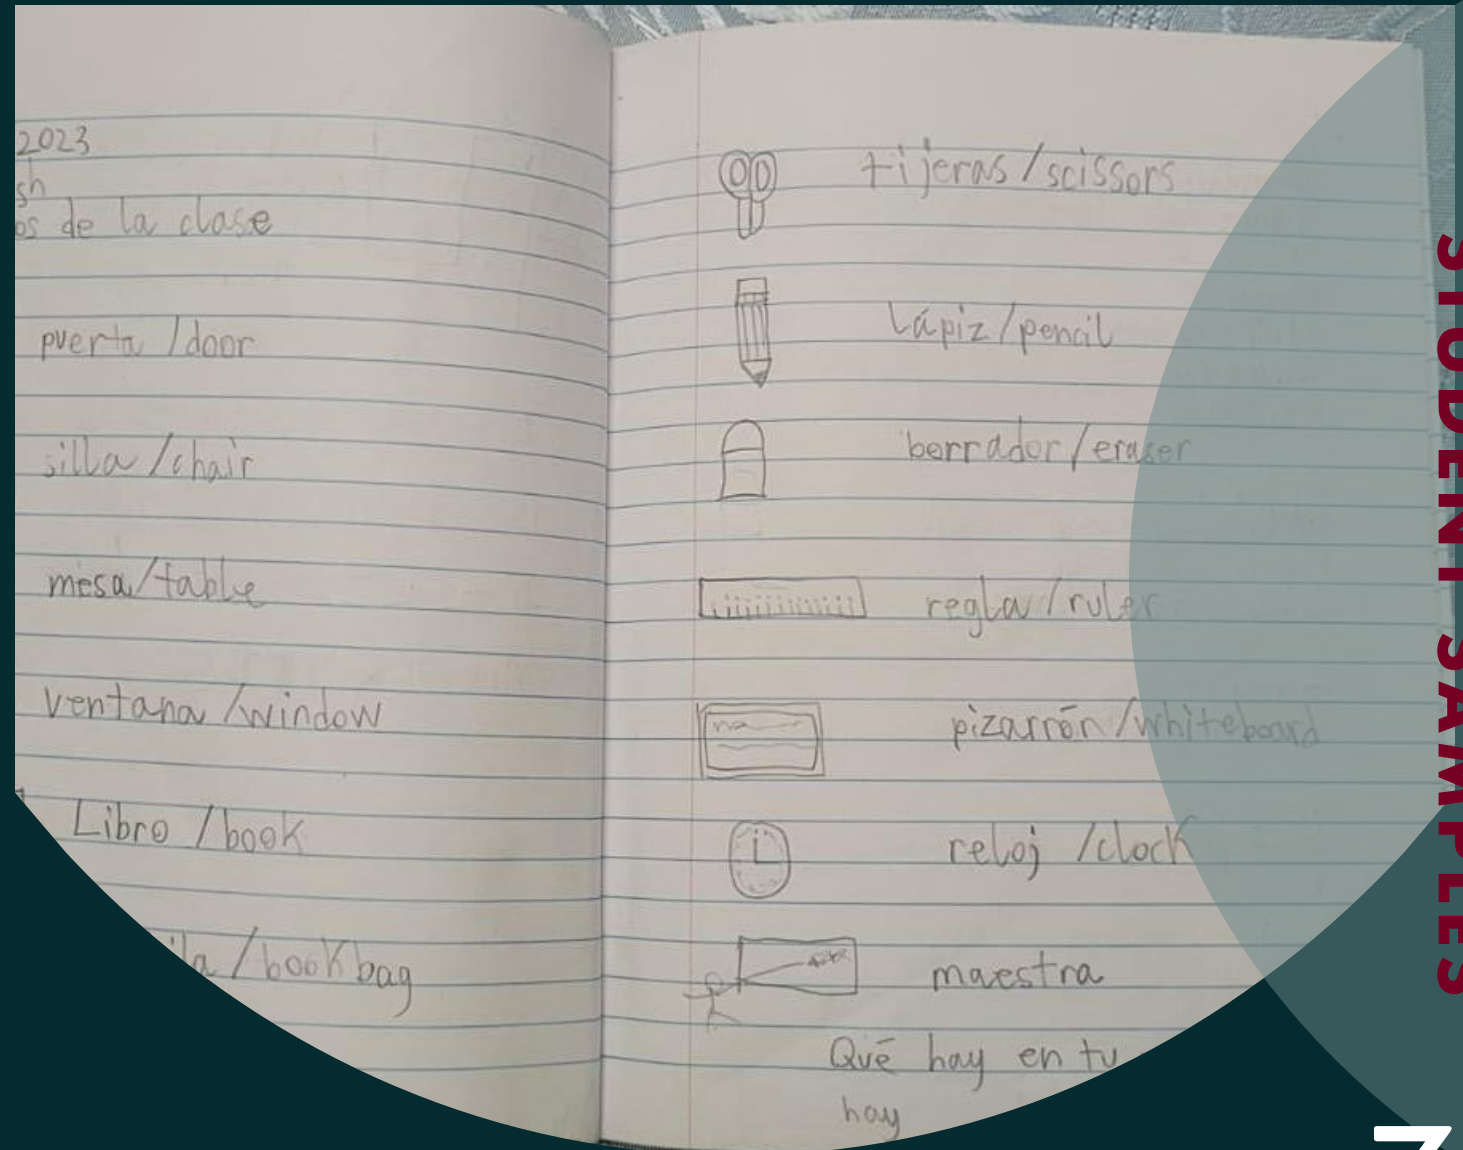 2023
sh
os de la clase
puerta / door
silla / chair
mesa / table
ventana / window
Libro / book
ila / bookbag
tijeras / scissors
lápiz / pencil
borrador / eraser
regla / ruler
pizarrón / whiteboard
reloj / clock
maestra
Qué hay en tu
hay
STUDENT SAMPLES